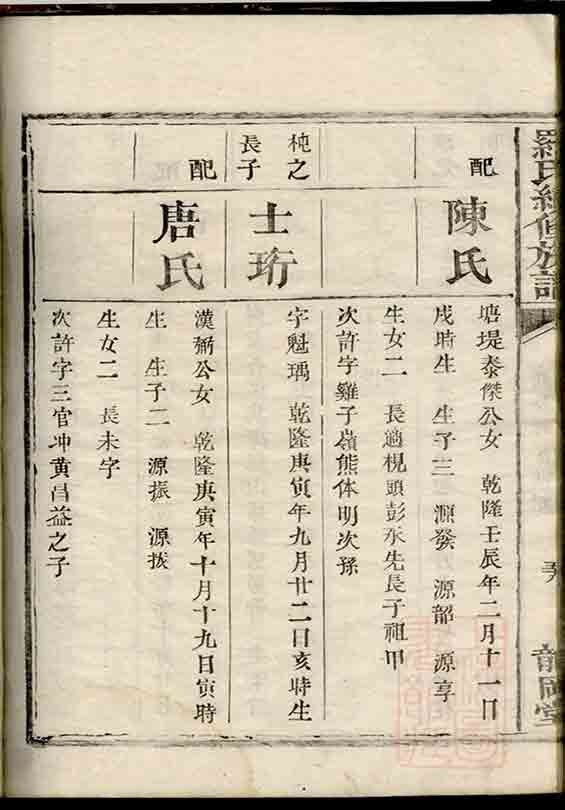 羅氏續修族譜
配
陳氏
塘堤泰傑公女　乾隆壬辰年二月十一日
戌時生　生子三　源發　源韶　源享
生女二　長適梘頭彭永先長子祖甲
次許字雞子嶺熊体明次孫
杶之
長子
士珩
字魁瑀　乾隆庚寅年九月廿二日亥時生
配
唐氏
漢衡公女　乾隆庚寅年十月十九日寅時
生　生子二　源振　源拔
生女二　長未字
次許字三官冲黄昌益之子